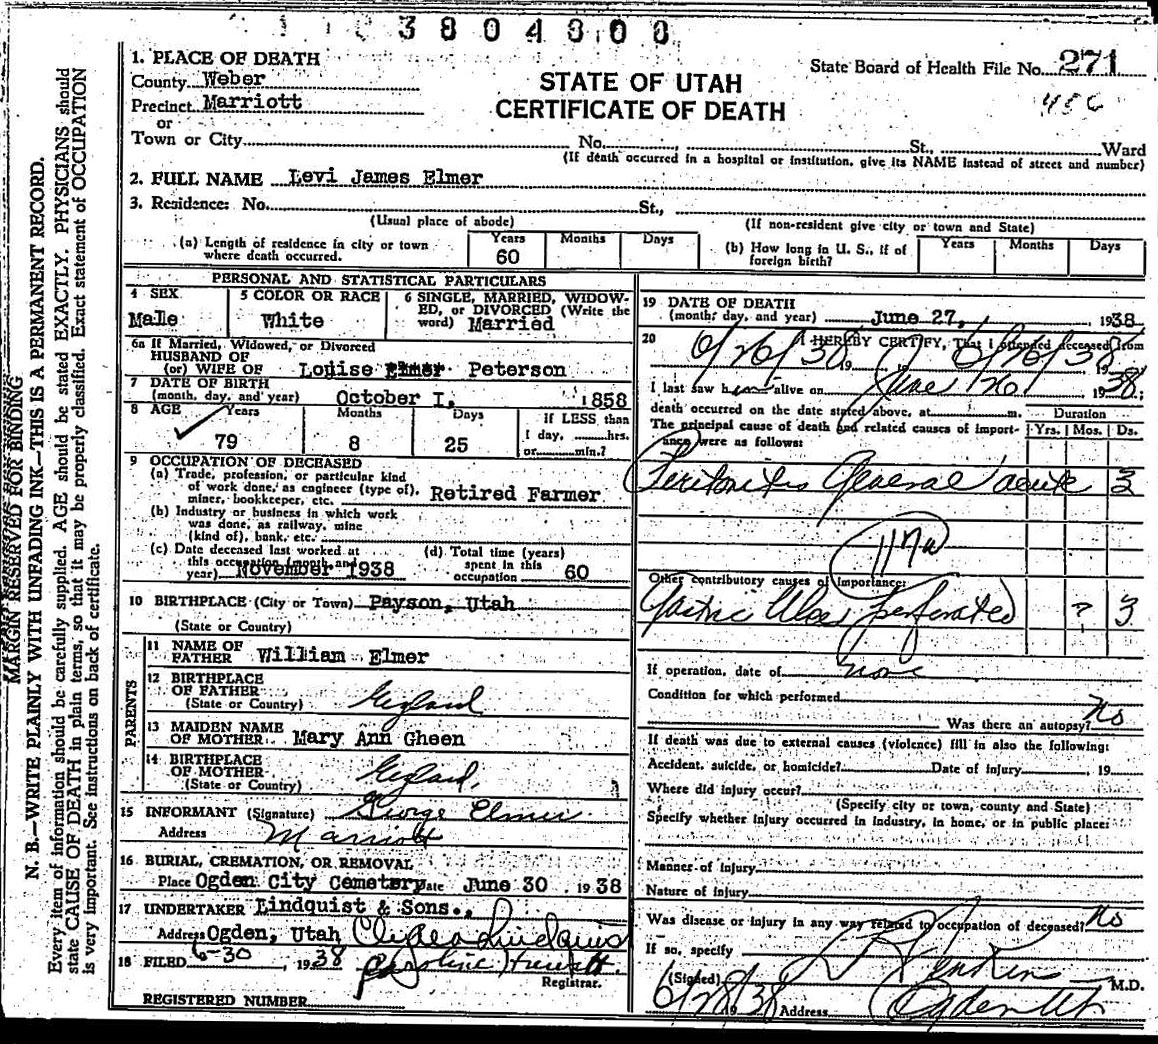 3804800
MARGIN RESERVED FOR BINDING
N. B.—WRITE PLAINLY WITH UNFADING INK—THIS IS A PERMANENT RECORD.
Every item of information should be carefully supplied. AGE should be stated EXACTLY. PHYSICIANS should
state CAUSE OF DEATH in plain terms, so that it may be properly classified. Exact statement of OCCUPATION
is very important. See instructions on back of certificate.
1. PLACE OF DEATH
County Weber
Precinct Marriott
or
Town or City No. St., Ward
STATE OF UTAH
CERTIFICATE OF DEATH
State Board of Health File No. 271
486
(If death occurred in a hospital or institution, give its NAME instead of street and number)
2. FULL NAME Levi James Elmer
3. Residence: No. St.,
(Usual place of abode) (If non-resident give city or town and State)
(a) Length of residence in city or town
where death occurred.
Years Months Days
60
(b) How long in U. S., if of
foreign birth?
Years Months Days
PERSONAL AND STATISTICAL PARTICULARS
4 SEX
Male
5 COLOR OR RACE
White
6 SINGLE, MARRIED, WIDOW-
ED, or DIVORCED (Write the
word) Married
6a If Married, Widowed, or Divorced
HUSBAND OF
(or) WIFE OF Louise Elmer Peterson
7 DATE OF BIRTH
(month, day, and year) October 1, 1858
8 AGE Years Months Days If LESS than
1 day, hrs.
79 8 25 or min.?
9 OCCUPATION OF DECEASED
(a) Trade, profession, or particular kind
of work done, as engineer (type of),
miner, bookkeeper, etc. Retired Farmer
(b) Industry or business in which work
was done, as railway, mine
(kind of), bank, etc.
(c) Date deceased last worked at
this occupation (month and
year) November 1938
(d) Total time (years)
spent in this
occupation 60
10 BIRTHPLACE (City or Town) Payson, Utah
(State or Country)
PARENTS
11 NAME OF
FATHER William Elmer
12 BIRTHPLACE
OF FATHER
(State or Country) England
13 MAIDEN NAME
OF MOTHER Mary Ann Gheen
14 BIRTHPLACE
OF MOTHER
(State or Country) England
15 INFORMANT (Signature) George Elmer
Address Marriott
16 BURIAL, CREMATION, OR REMOVAL
Place Ogden City Cemetery Date June 30 1938
17 UNDERTAKER Lindquist & Sons.,
Address Ogden, Utah Clyde Lindquist
18 FILED 6-30, 1938 Caroline
Registrar.
REGISTERED NUMBER
19 DATE OF DEATH
(month, day, and year) June 27, 1938
20 I HEREBY CERTIFY, That I attended deceased from
6/26/38 19 to 6/26/38 19
I last saw him alive on June 26 1938;
death occurred on the date stated above, at m.
The principal cause of death and related causes of import-
ance were as follows:
Duration
Yrs. Mos. Ds.
Peritonitis General acute 3
117a
Other contributory causes of importance:
Gastric Ulcer perforated ? 3
If operation, date of none
Condition for which performed
Was there an autopsy? No
If death was due to external causes (violence) fill in also the following:
Accident, suicide, or homicide? Date of injury , 19
Where did injury occur?
(Specify city or town, county and State)
Specify whether injury occurred in industry, in home, or in public place:
Manner of injury
Nature of injury
Was disease or injury in any way related to occupation of deceased? No
If so, specify
(Signed) Jenkins M.D.
6/28/38 Address Ogden Ut